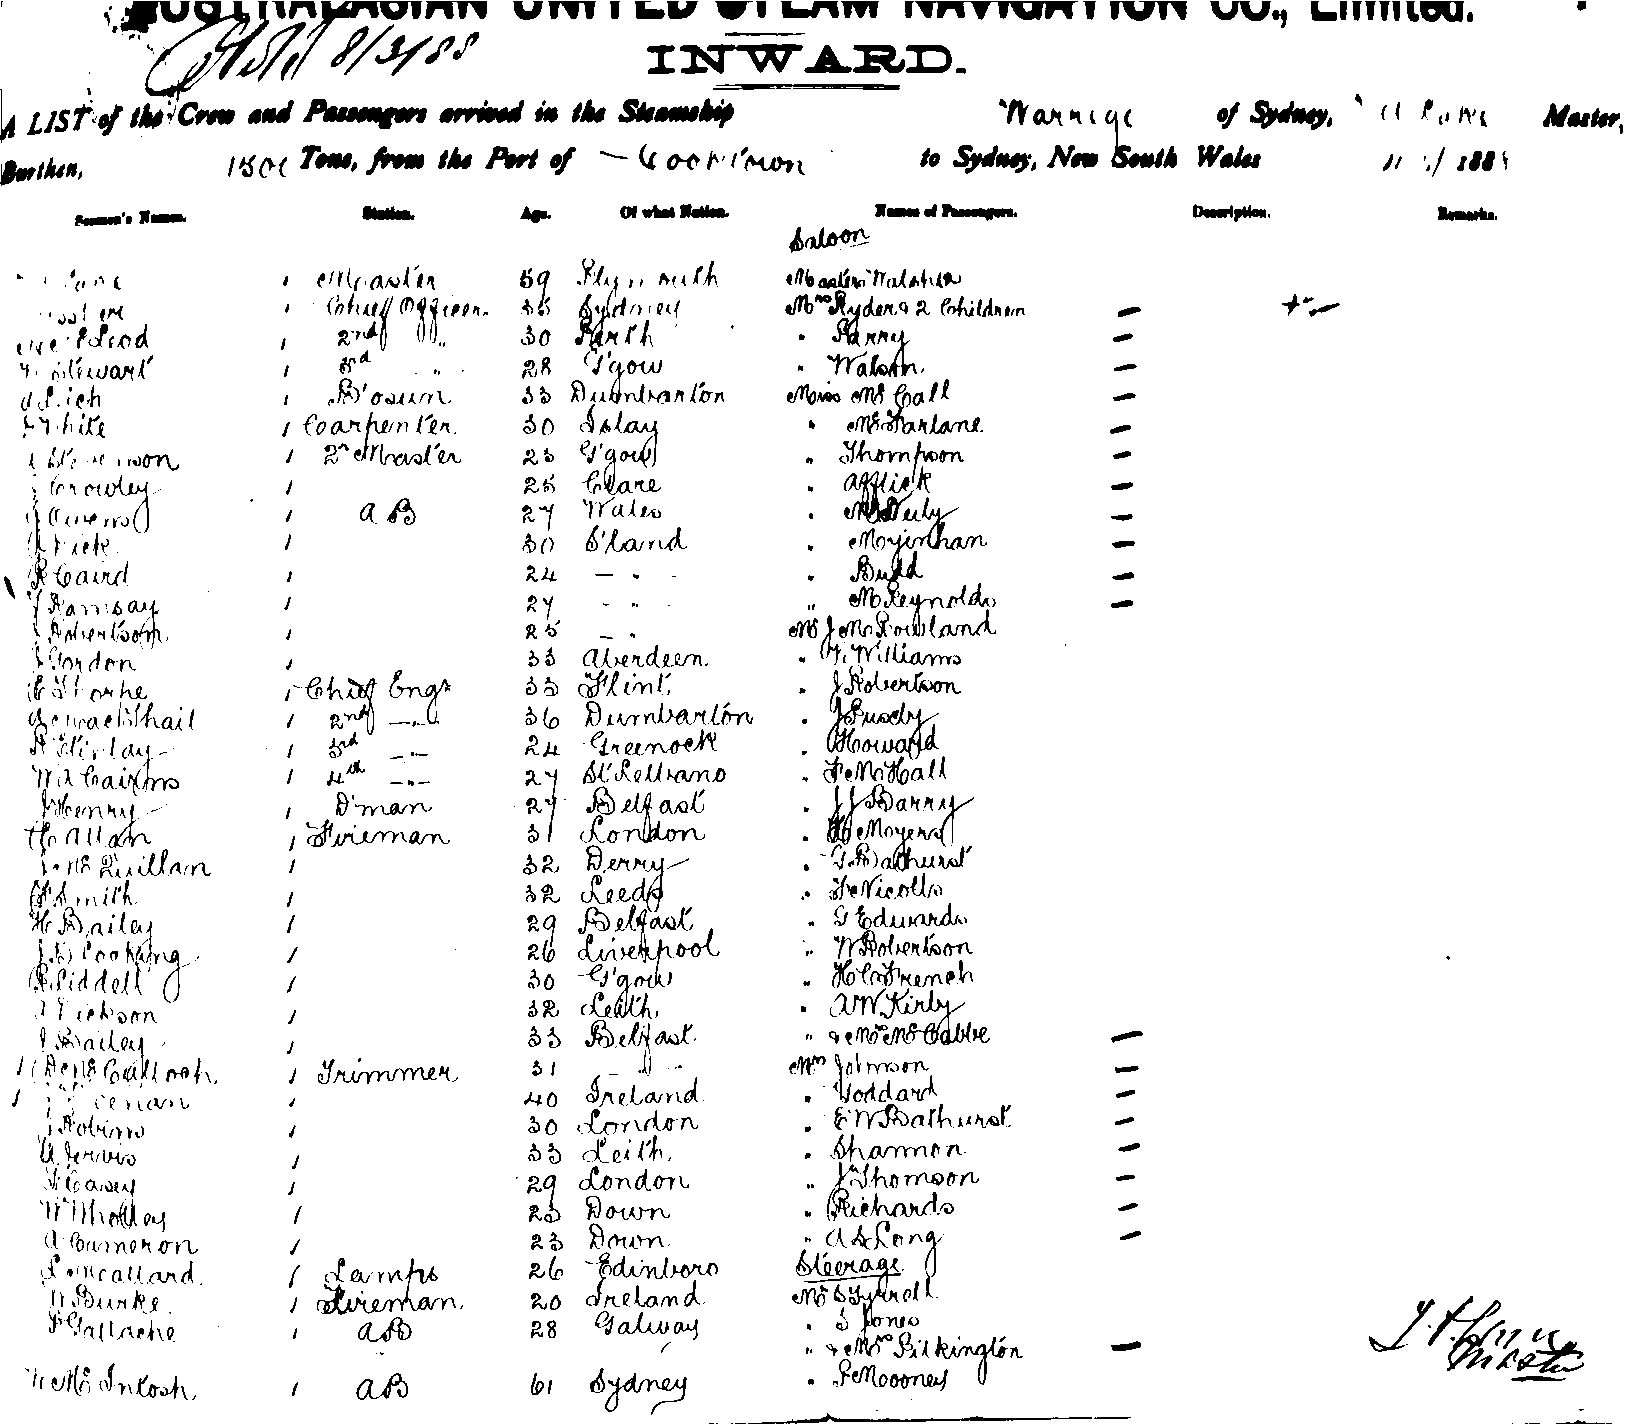 AUSTRALASIAN UNITED STEAM NAVIGATION CO., Limited.
8/3/88
INWARD.
A LIST of the Crew and Passengers arrived in the Steamship Warrego of Sydney, Master,
Burthen, Tons, from the Port of Cooktown to Sydney, New South Wales 188
Seamen's Names. Station. Age. Of what Nation. Names of Passengers. Description. Remarks.
Saloon
Master 59 Plymouth Masters
Chief Officer 35 Sydney Mrs Ryder & 2 Children
2nd " 30 Perth " Parry
Stewart 3rd " 28 G'gow " Watson
Bosun 33 Dumbarton Miss McCall
White Carpenter 30 Islay " McFarlane
2nd Master 23 G'gow " Thompson
Crowley 25 Clare " Afflick
Owens AB 27 Wales "
30 S'land "
R Caird 24 — " " Budd
J Ramsay 27 - " " McReynolds
Robertson 25 — " Mr J McRowland
J Gordon 33 Aberdeen " Williams
E Thorpe Chief Engr 33 Flint " J Robertson
2nd —"— 36 Dumbarton " J Pusey
R Finlay 3rd —"— 24 Greenock " Howard
W A Cairns 4th —"— 27 " F McHall
J Henry D'man 27 Belfast " J J Barry
H Allan Fireman 31 London " Moyers
McQuillan 32 Derry " G Bathurst
Smith 32 Leeds " Nicolls
H Bailey 29 Belfast " G Edwards
J B Cooking 26 Liverpool " W Robertson
R Liddell 30 G'gow " H C French
Dickson 32 Leith " A W Kirby
J Bailey 33 Belfast " & Mrs McCabbe
McCulloch Trimmer 31 - " - Mrs Johnson
40 Ireland " Goddard
Robins 30 London " E W Bathurst
A Jervis 33 Leith " Shannon
Casey 29 London " J Thomson
23 Down " Richards
A Cameron 23 Down " A S Long
Lamps 26 Edinboro Steerage
W Burke Fireman 20 Ireland Mr S Tyrrell
AB 28 Galway " S Jones
" & Mrs Pilkington
McIntosh AB 61 Sydney " P Mooney
Master